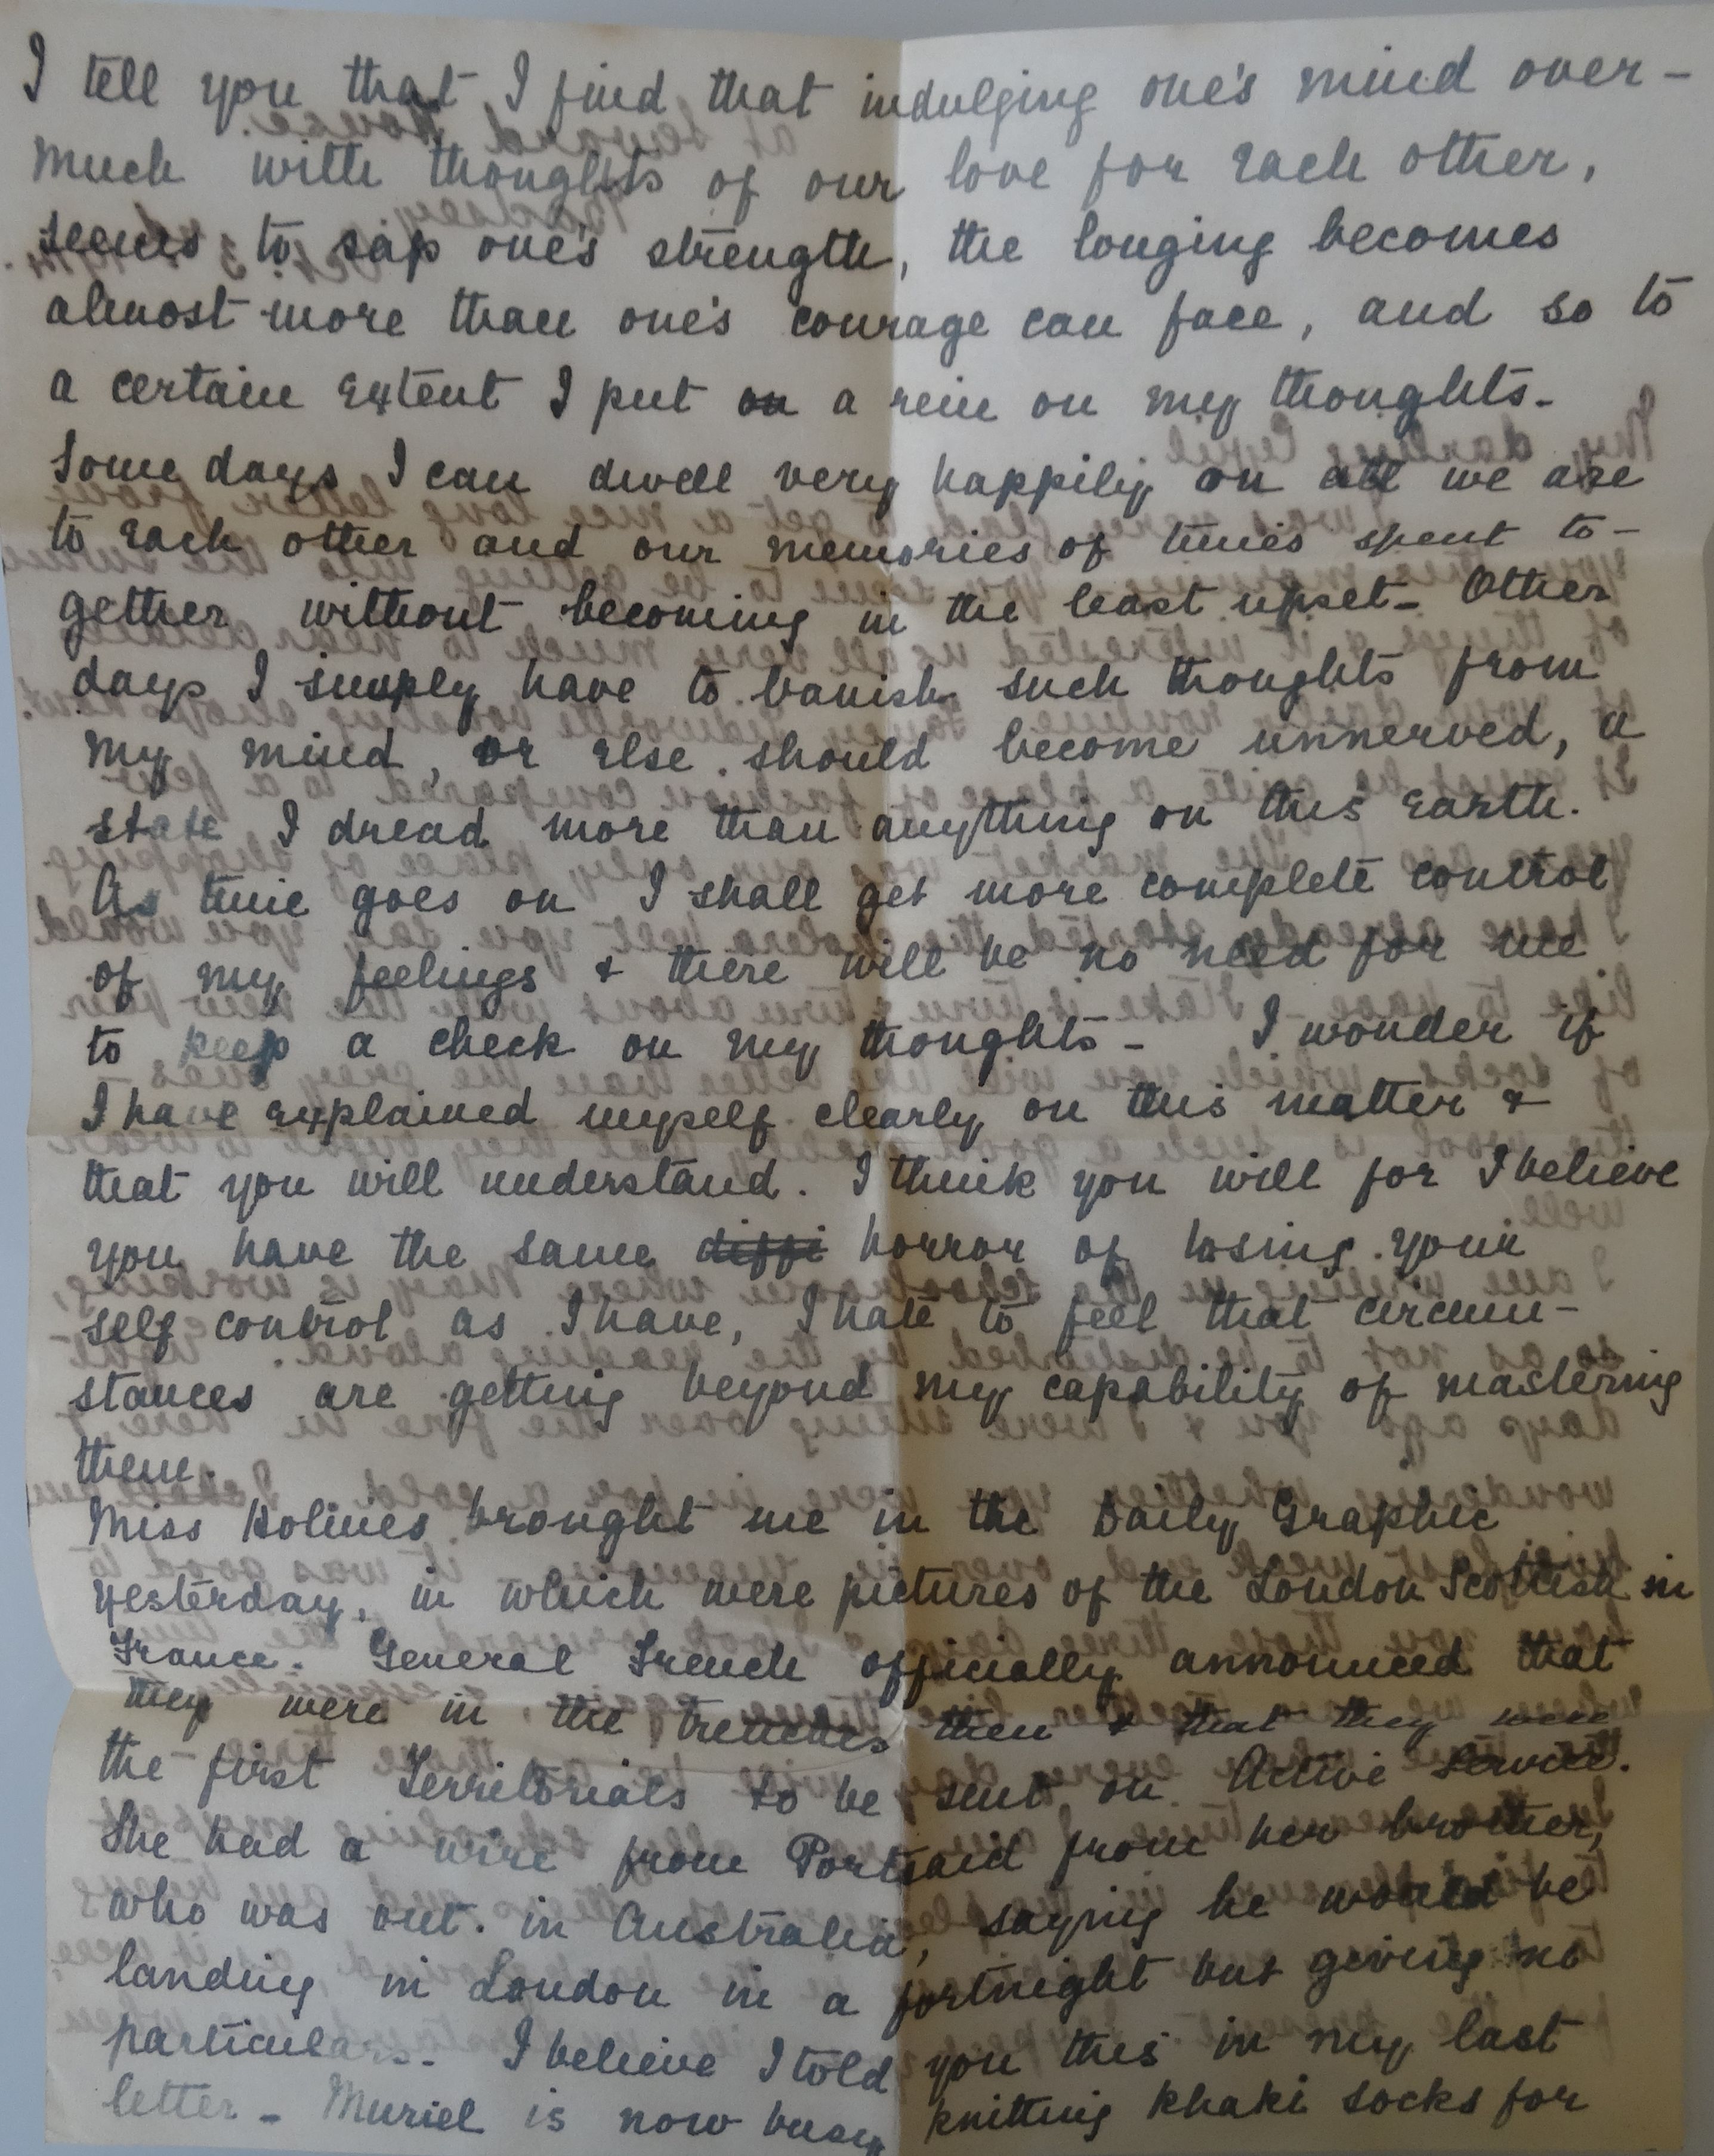 I tell you that I find that indulging one's mind over-
much with thoughts of our love for each other,
seems to sap one's strength, the longing becomes
almost more than one's courage can face, and so to
a certain extent I put on a rein on my thoughts-
Some days I can dwell very happily on all we are
to each other and our memories of times spent to-
gether without becoming in the least upset- Other
days I simply have to banish such thoughts from
my mind, or else should become unnerved, a
state I dread more than anything on this earth.
As time goes on I shall get more complete control
of my feelings & there will be no need for me
to keep a check on my thoughts- I wonder if
I have explained myself clearly on this matter &
that you will understand. I think you will for I believe
you have the same diffi horror of losing your
self control as I have, I hate to feel that circum-
stances are getting beyond my capability of mastering
them.
Miss Holmes brought me in the Daily Graphic
yesterday, in which were pictures of the London Scottish in
France. General French officially announced that
they were in the trenches then & that they were
the first Territorials to be sent on Active Service.
She had a wire from Portsaid from her brother,
who was out in Australia, saying he would be
landing in London in a fortnight but giving no
particulars- I believe I told you this in my last
letter- Muriel is now busy knitting khaki socks for